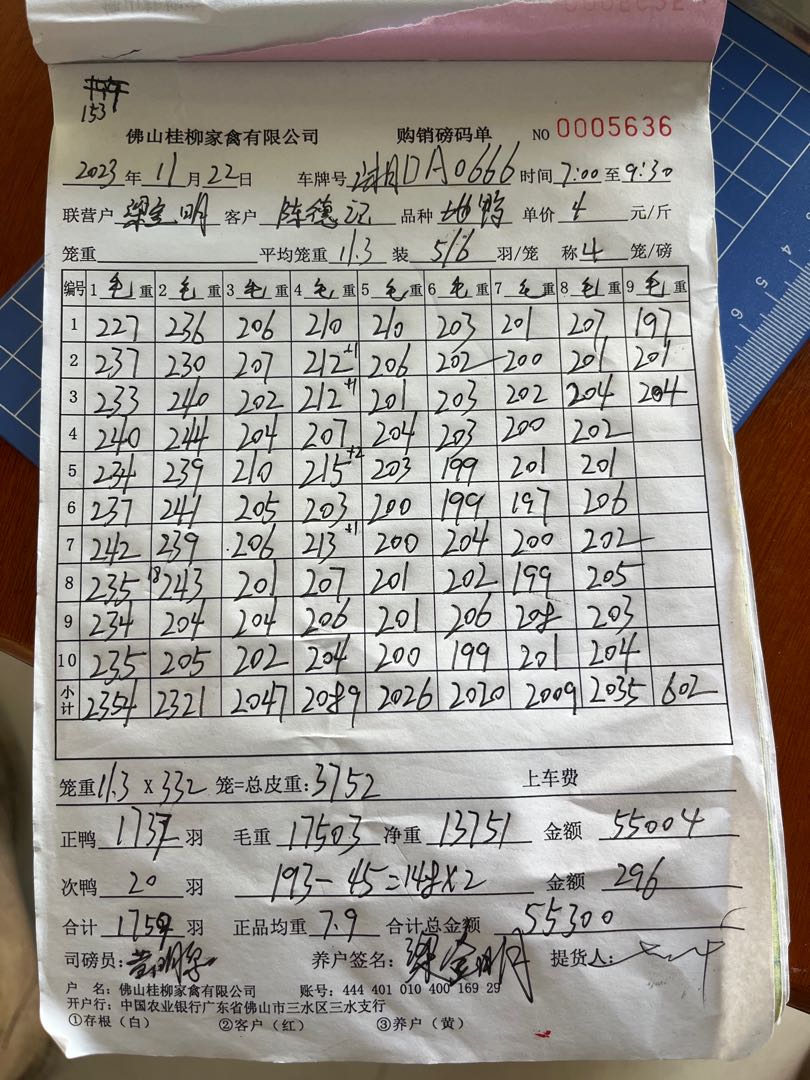 153
佛山桂柳家禽有限公司 购销磅码单 NO 0005636
2023年11月22日 车牌号 DA0666 时间 7:00至9:30
联营户 梁金明 客户 陈德记 品种 土鸭 单价 4 元/斤
笼重 平均笼重 11.3 装 5/6 羽/笼 称 4 笼/磅
编号 1 毛重 2 毛重 3 毛重 4 毛重 5 毛重 6 毛重 7 毛重 8 毛重 9 毛重
1 227 236 206 210 210 203 201 207 197
2 237 230 207 212+1 206 202 200 201 201
3 233 240 202 212+1 201 203 202 204 204
4 240 244 204 207 204 203 200 202
5 234 239 210 215+2 203 199 201 201
6 237 241 205 203 200 199 197 206
7 242 239 206 213+1 200 204 200 202
8 235 18 243 201 207 201 202 199 205
9 234 204 204 206 201 206 208 203
10 235 205 202 204 200 199 201 204
小计 2354 2321 2047 2089 2026 2020 2009 2035 602
笼重 11.3 X 332 笼=总皮重:3752 上车费
正鸭 1737 羽 毛重 17503 净重 13751 金额 55004
次鸭 20 羽 193-45=148X2 金额 296
合计 1757 羽 正品均重 7.9 合计总金额 55300
司磅员: 养户签名: 梁金明 提货人:
户 名: 佛山桂柳家禽有限公司 账号: 444 401 010 400 169 29
开户行: 中国农业银行广东省佛山市三水区三水支行
①存根（白） ②客户（红） ③养户（黄）